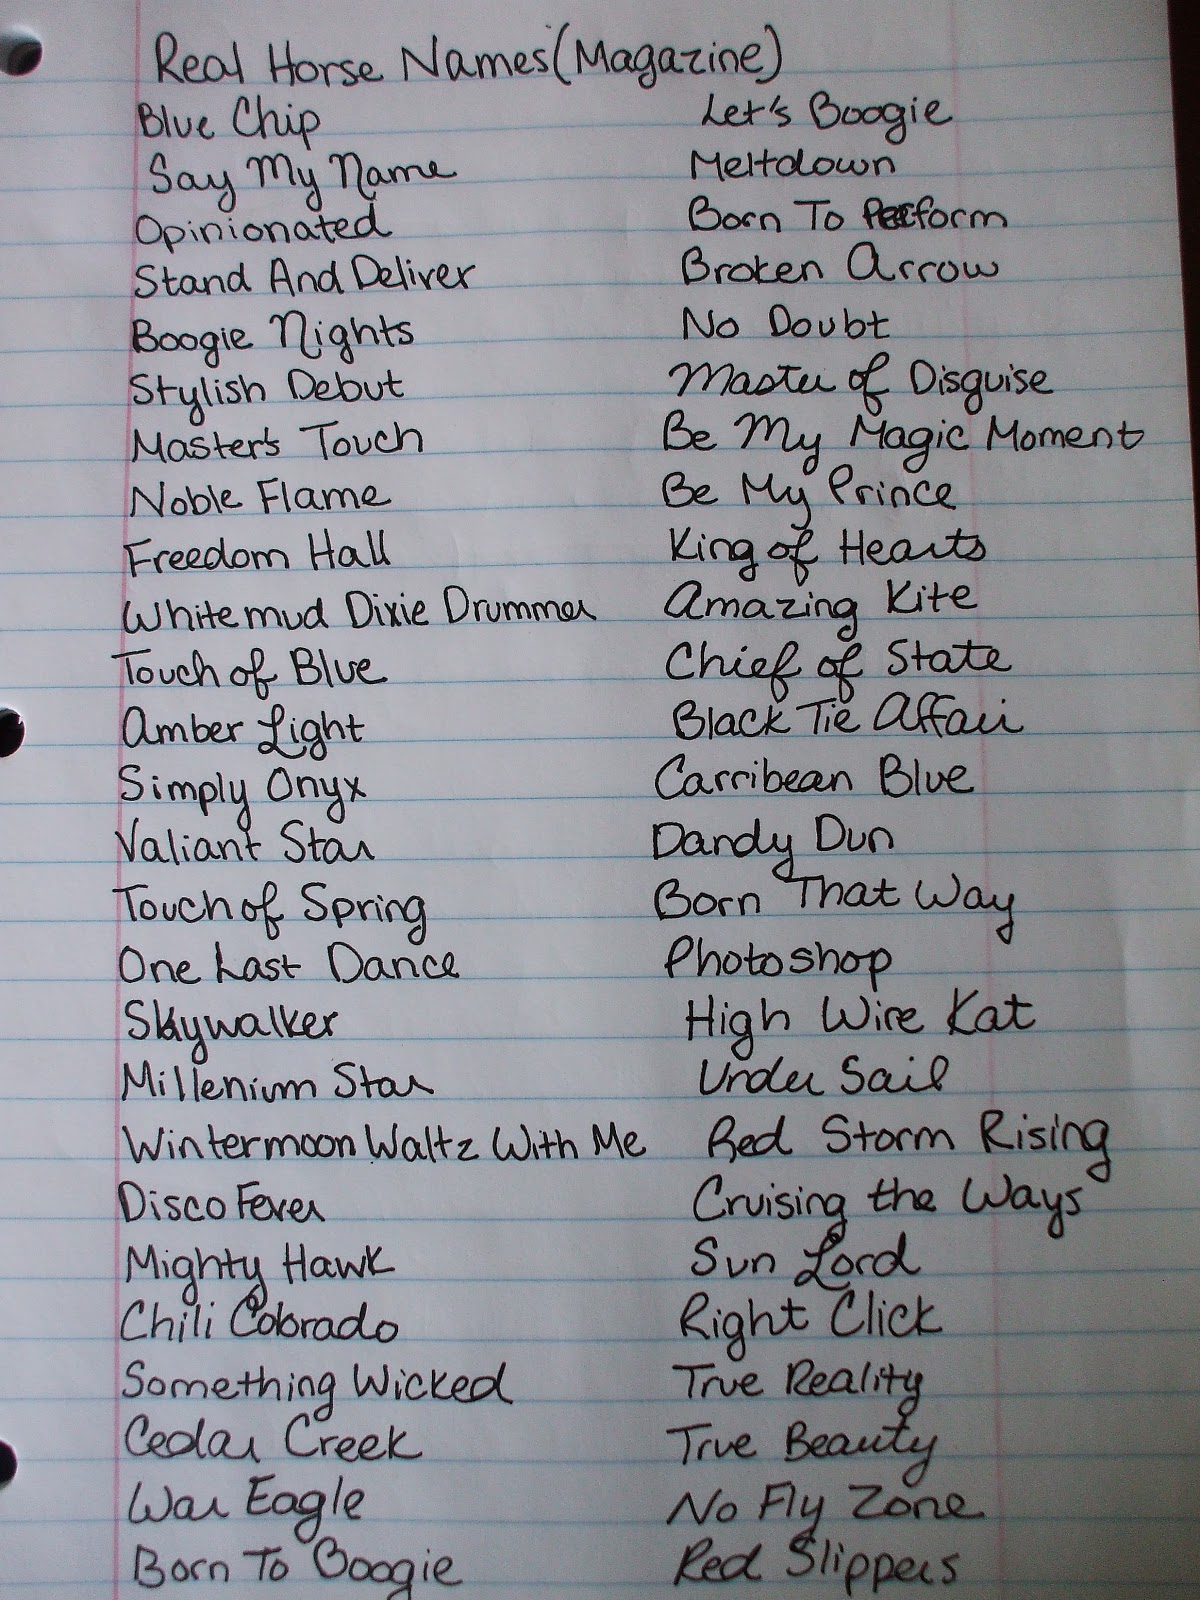 Real Horse Names(Magazine)
Blue Chip
Say My Name
Opinionated
Stand And Deliver
Boogie Nights
Stylish Debut
Master's Touch
Noble Flame
Freedom Hall
Whitemud Dixie Drummer
Touch of Blue
Amber Light
Simply Onyx
Valiant Star
Touch of Spring
One Last Dance
Skywalker
Millenium Star
Wintermoon Waltz With Me
Disco Fever
Mighty Hawk
Chili Colorado
Something Wicked
Cedar Creek
War Eagle
Born To Boogie
Let's Boogie
Meltdown
Born To Perform
Broken Arrow
No Doubt
Master of Disguise
Be My Magic Moment
Be My Prince
King of Hearts
Amazing Kite
Chief of State
Black Tie Affair
Carribean Blue
Dandy Dun
Born That Way
Photoshop
High Wire Kat
Under Sail
Red Storm Rising
Cruising the Ways
Sun Lord
Right Click
True Reality
True Beauty
No Fly Zone
Red Slippers